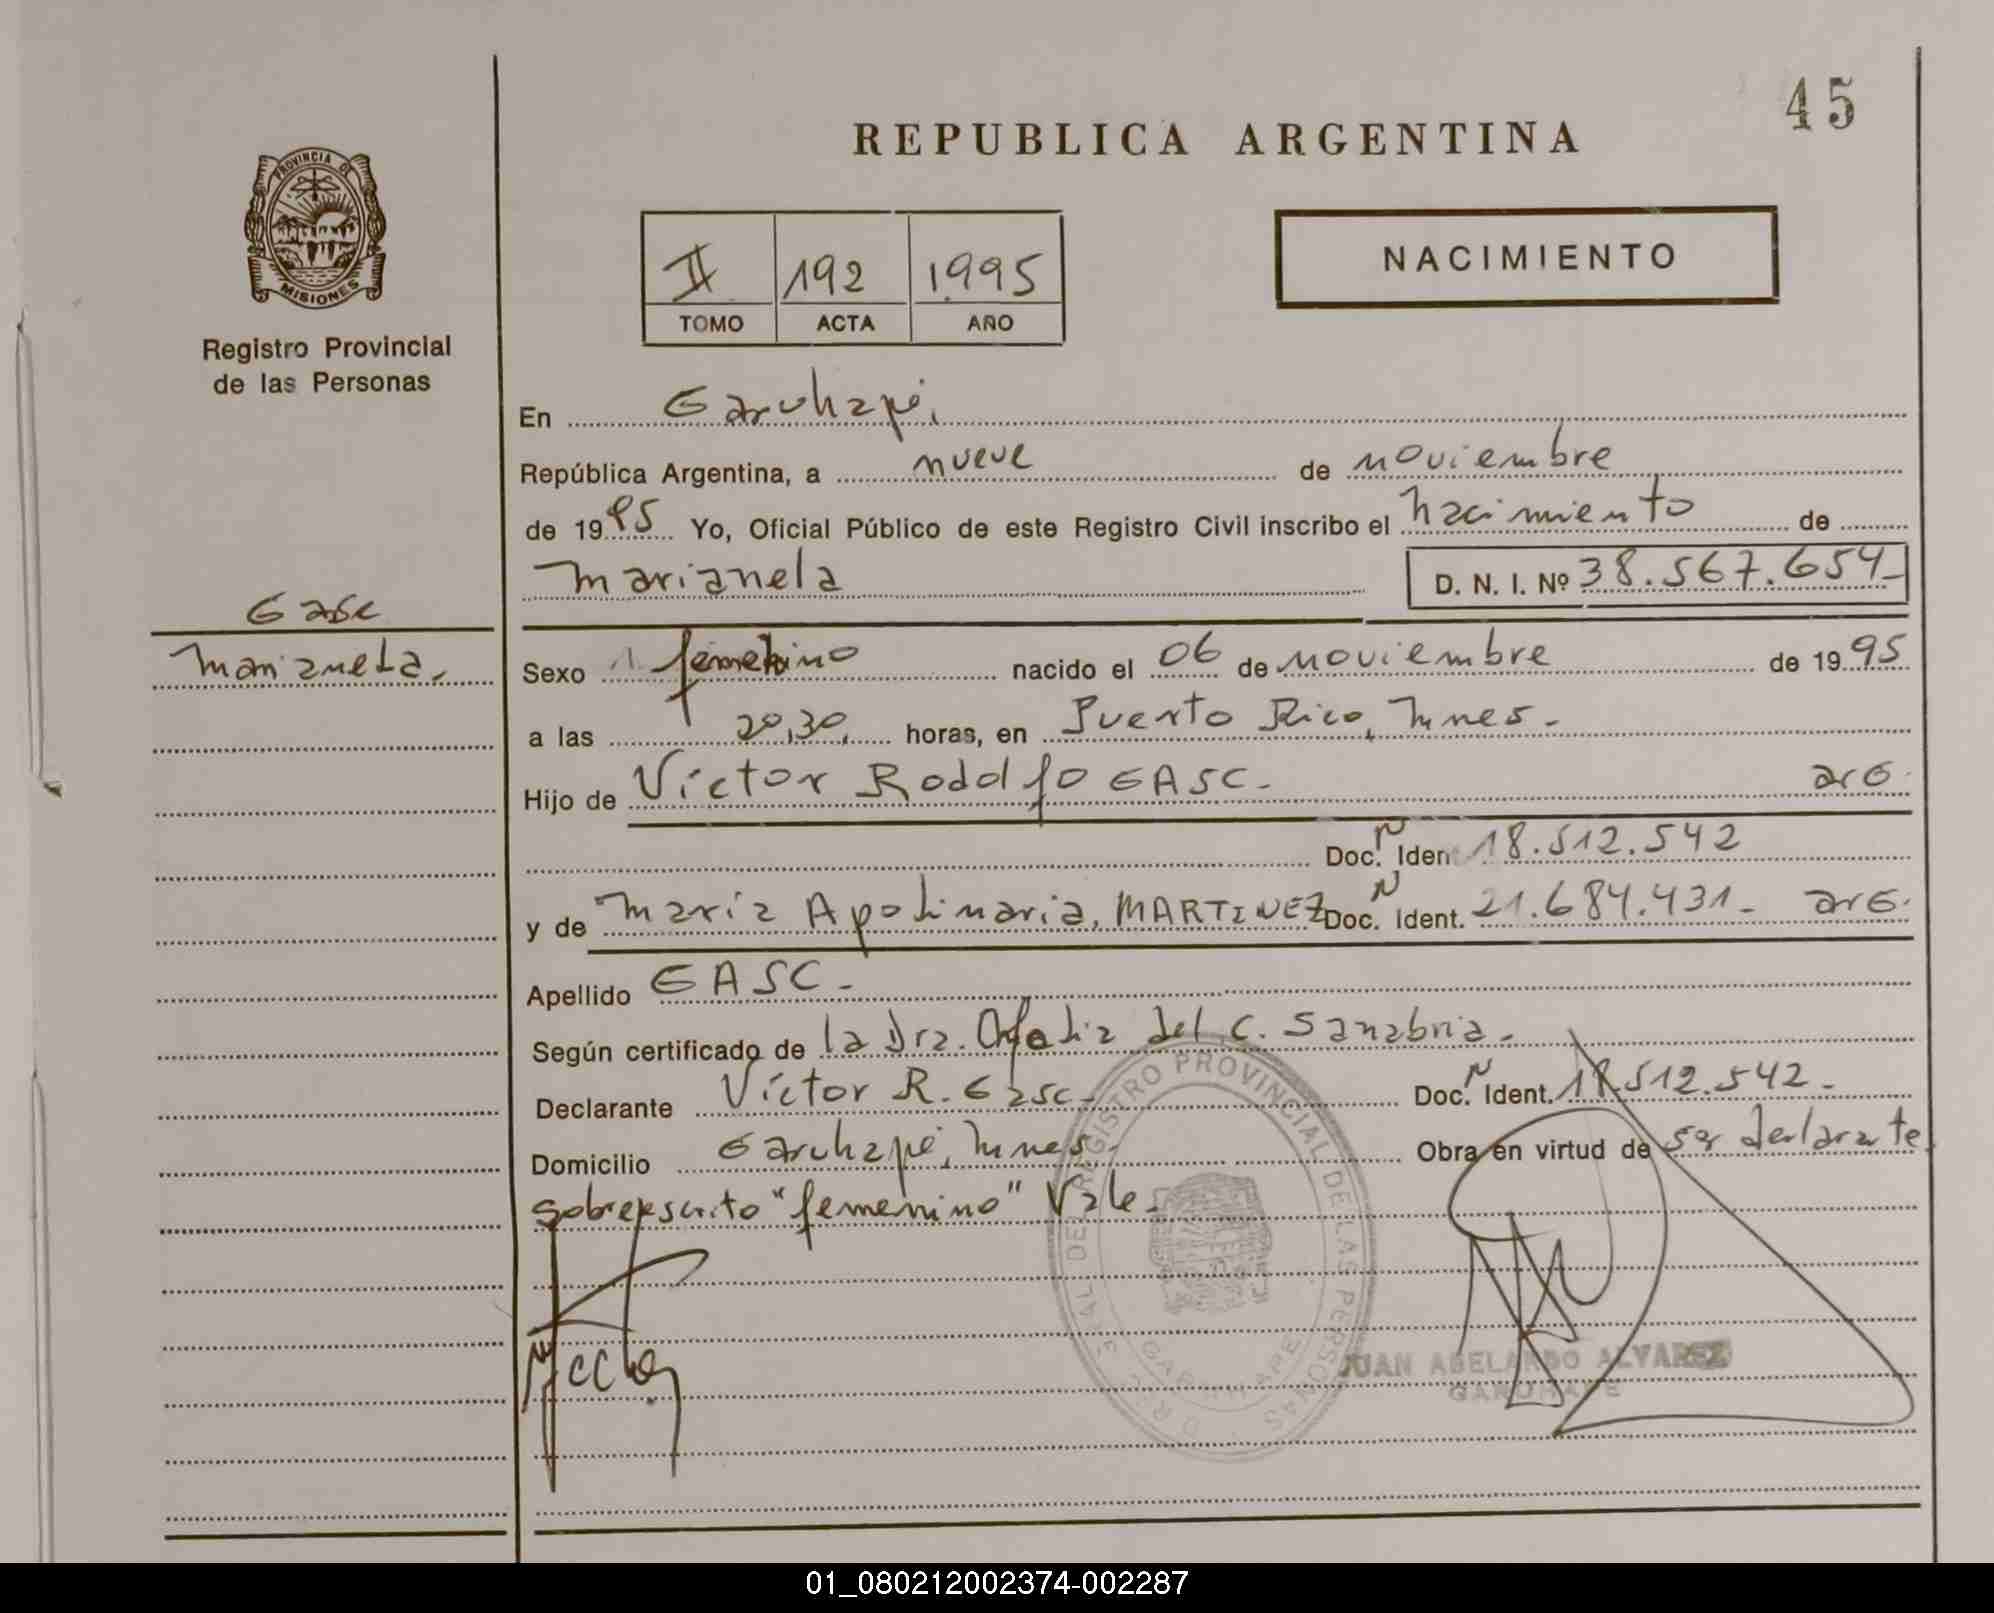 45
REPUBLICA ARGENTINA
PROVINCIA DE
MISIONES
Registro Provincial
de las Personas
II 192 1995
TOMO ACTA AÑO
NACIMIENTO
En Garuhapé,
República Argentina, a nueve de noviembre
de 1995 Yo, Oficial Público de este Registro Civil inscribo el nacimiento de
Marianela D. N. I. Nº 38.567.654-
Gasc
Marianela.
Sexo femenino nacido el 06 de noviembre de 1995
a las 20,30, horas, en Puerto Rico, Mnes.-
Hijo de Víctor Rodolfo GASC- arG.
Doc. N Ident. 18.512.542
y de María Apolinaria, MARTINEZ Doc. N Ident. 21.684.431- arG.
Apellido GASC-
Según certificado de la Dra. Ofelia del C. Sanabria.-
Declarante Víctor R. Gasc- Doc. N Ident. 18.512.542-
Domicilio Garuhapé, Mnes. Obra en virtud de ser declarante.
Sobreescrito "femenino" Vale-
REGISTRO PROVINCIAL DE LAS PERSONAS
GARUHAPE
JUAN ABELARDO ALVAREZ
GARUHAPE
01_080212002374-002287